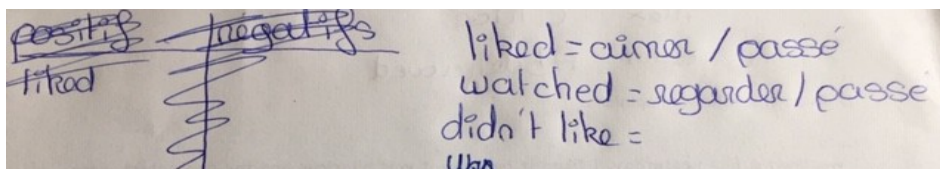 positif negatifs
liked
liked = aimer / passé
watched = regarder / passé
didn't like =